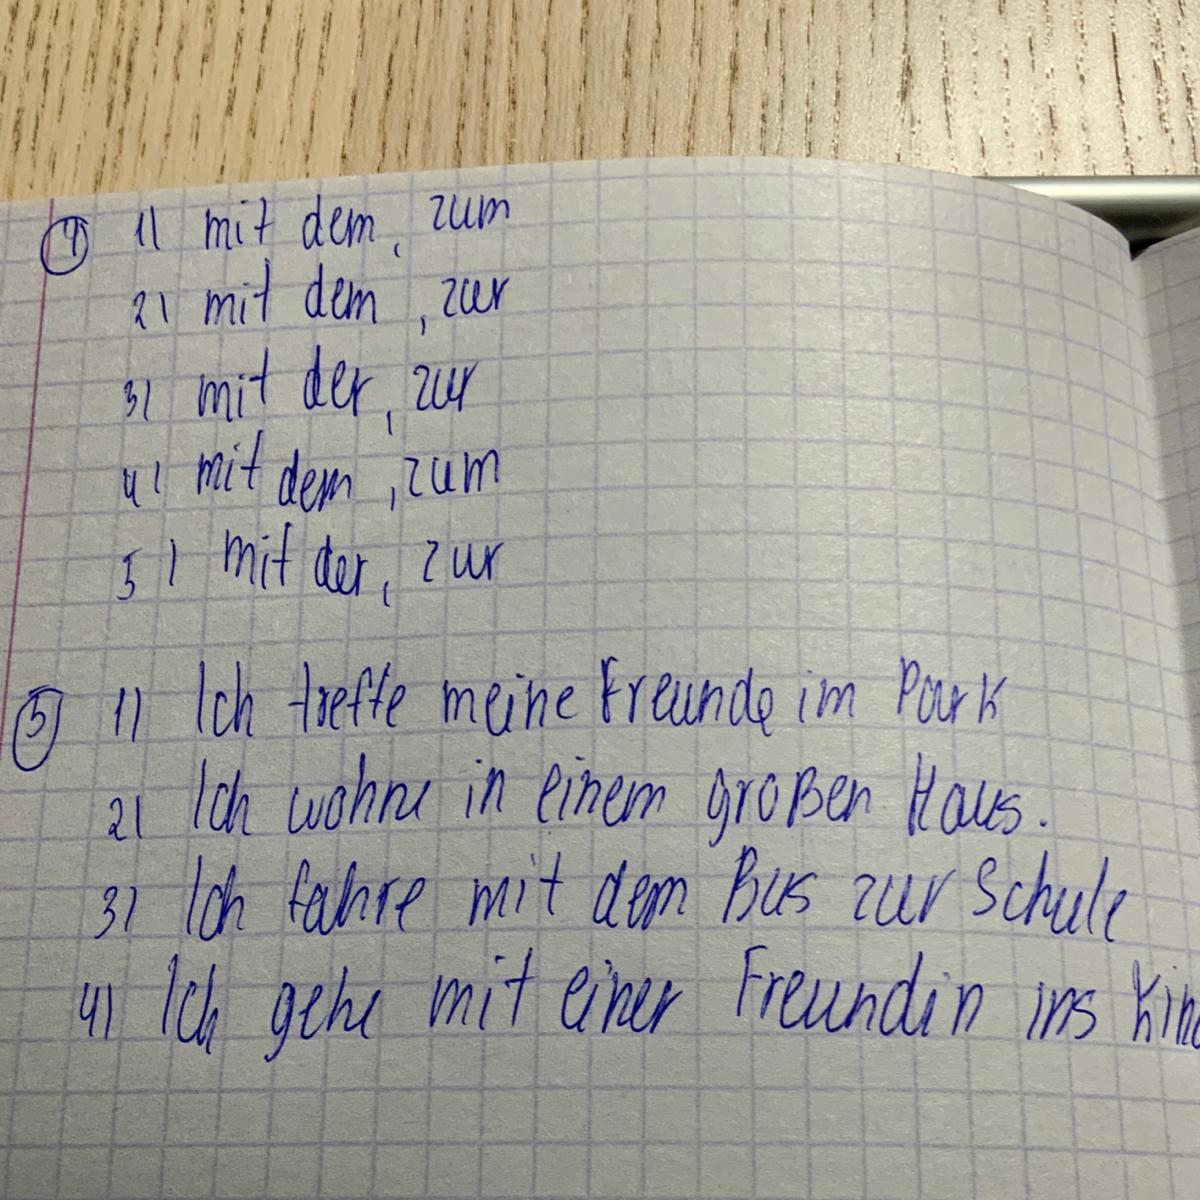 ④ 1) mit dem, zum
2) mit dem, zur
3) mit der, zur
4) mit dem, zum
5) mit der, zur
⑤ 1) Ich treffe meine Freunde im Park
2) Ich wohne in einem großen Haus.
3) Ich fahre mit dem Bus zur Schule
4) Ich gehe mit einer Freundin ins Kino